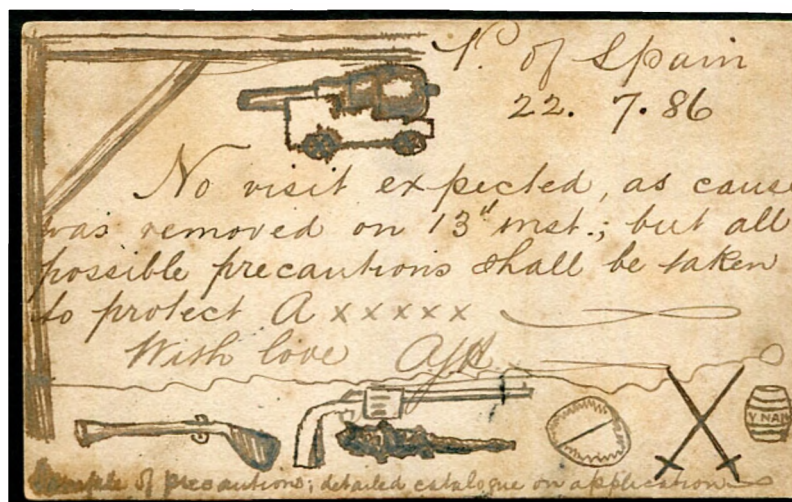 P. of Spain
22. 7. 86
No visit expected, as cause
was removed on 13th inst.; but all
possible precautions shall be taken
to protect A x x x x x
With love AJH
V NAM
of precautions; detailed catalogue on application